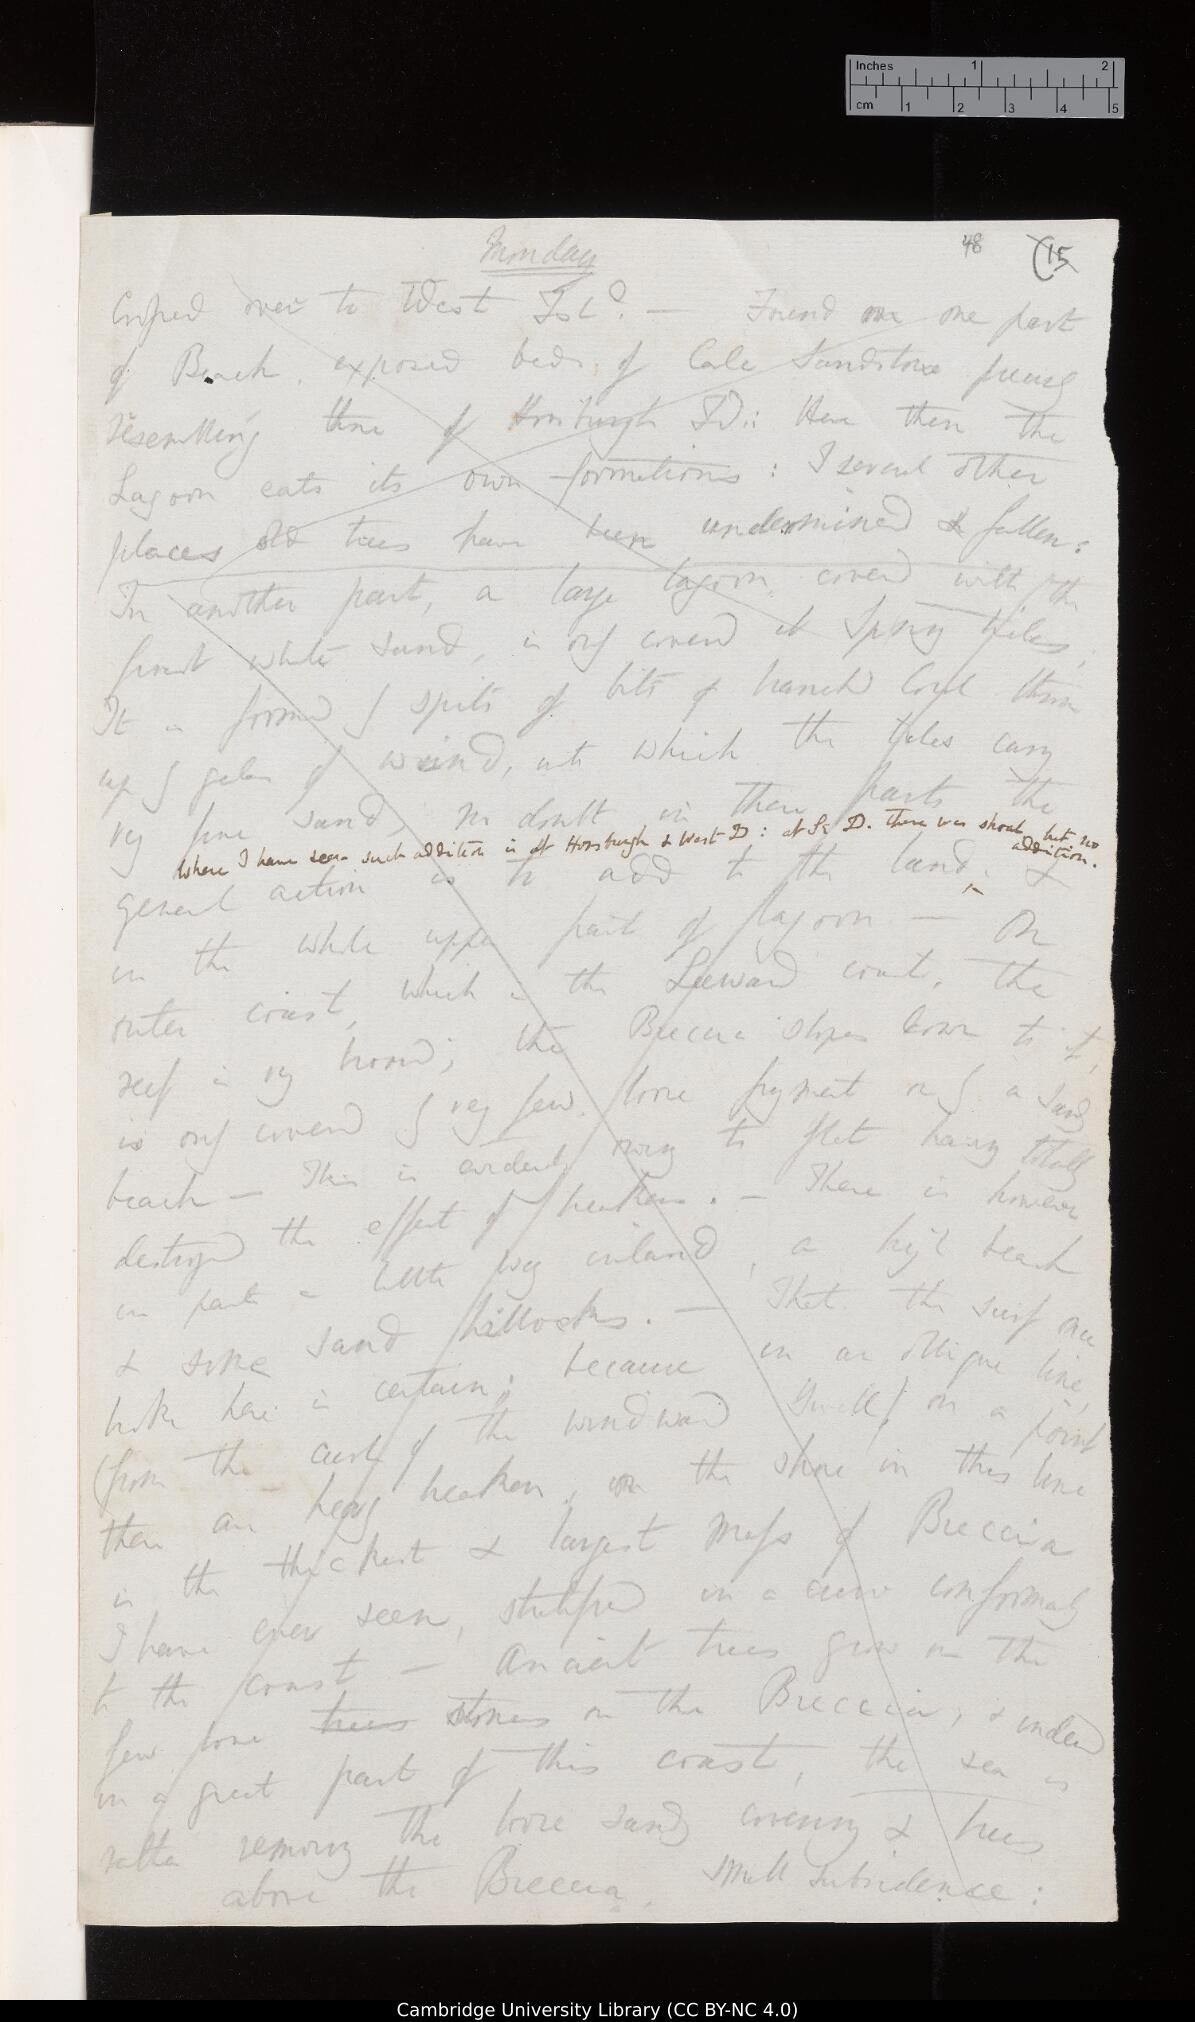 Inches 1 2
cm 1 2 3 4 5
Monday
48 (15
Crossed over to West Isld. — Found on one part
of Beach, exposed beds of Calc Sandstone
resembling those of Horsburgh Isd: Here then the
Lagoon eats its own formations: I several other
places old trees have been undermined & fallen:
In another part, a large lagoon, covered with the
finest white sand, is only covered at Spring tides,
It is formed by spits of bits of branched Coral thrown
up by gales of wind, into which the tides carry
very fine sand, no doubt in these parts the
Where I have seen such addition is at Horsburgh & West I D: at S. I D. there was shoal but no
addition.
general action is to add to the land. &
in the whole upper part of lagoon — On
outer coast, which is the Leeward coast, the
reef is very broad; the Breccia slopes down to it,
is only covered by very few loose fragment or by a sandy
beach — This is evidently owing to flat having totally
destroyed the effect of breakers. — There is however
in parts a little way inland, a high beach
& some sand hillocks. — That the surf once
broke here is certain; because in an oblique line,
(from the curl of the windward swell) on a point
there are heavy breakers, on the shore in this line
is the thickest & largest mass of Breccia
I have ever seen, stratified in a curve conformably
to the coast — Ancient trees grow on the
few loose trees stones on the Breccia, & indeed
in a great part of this coast, the sea is
rather removing the loose sandy covering & trees
above the Breccia. Small subsidence:
Cambridge University Library (CC BY-NC 4.0)